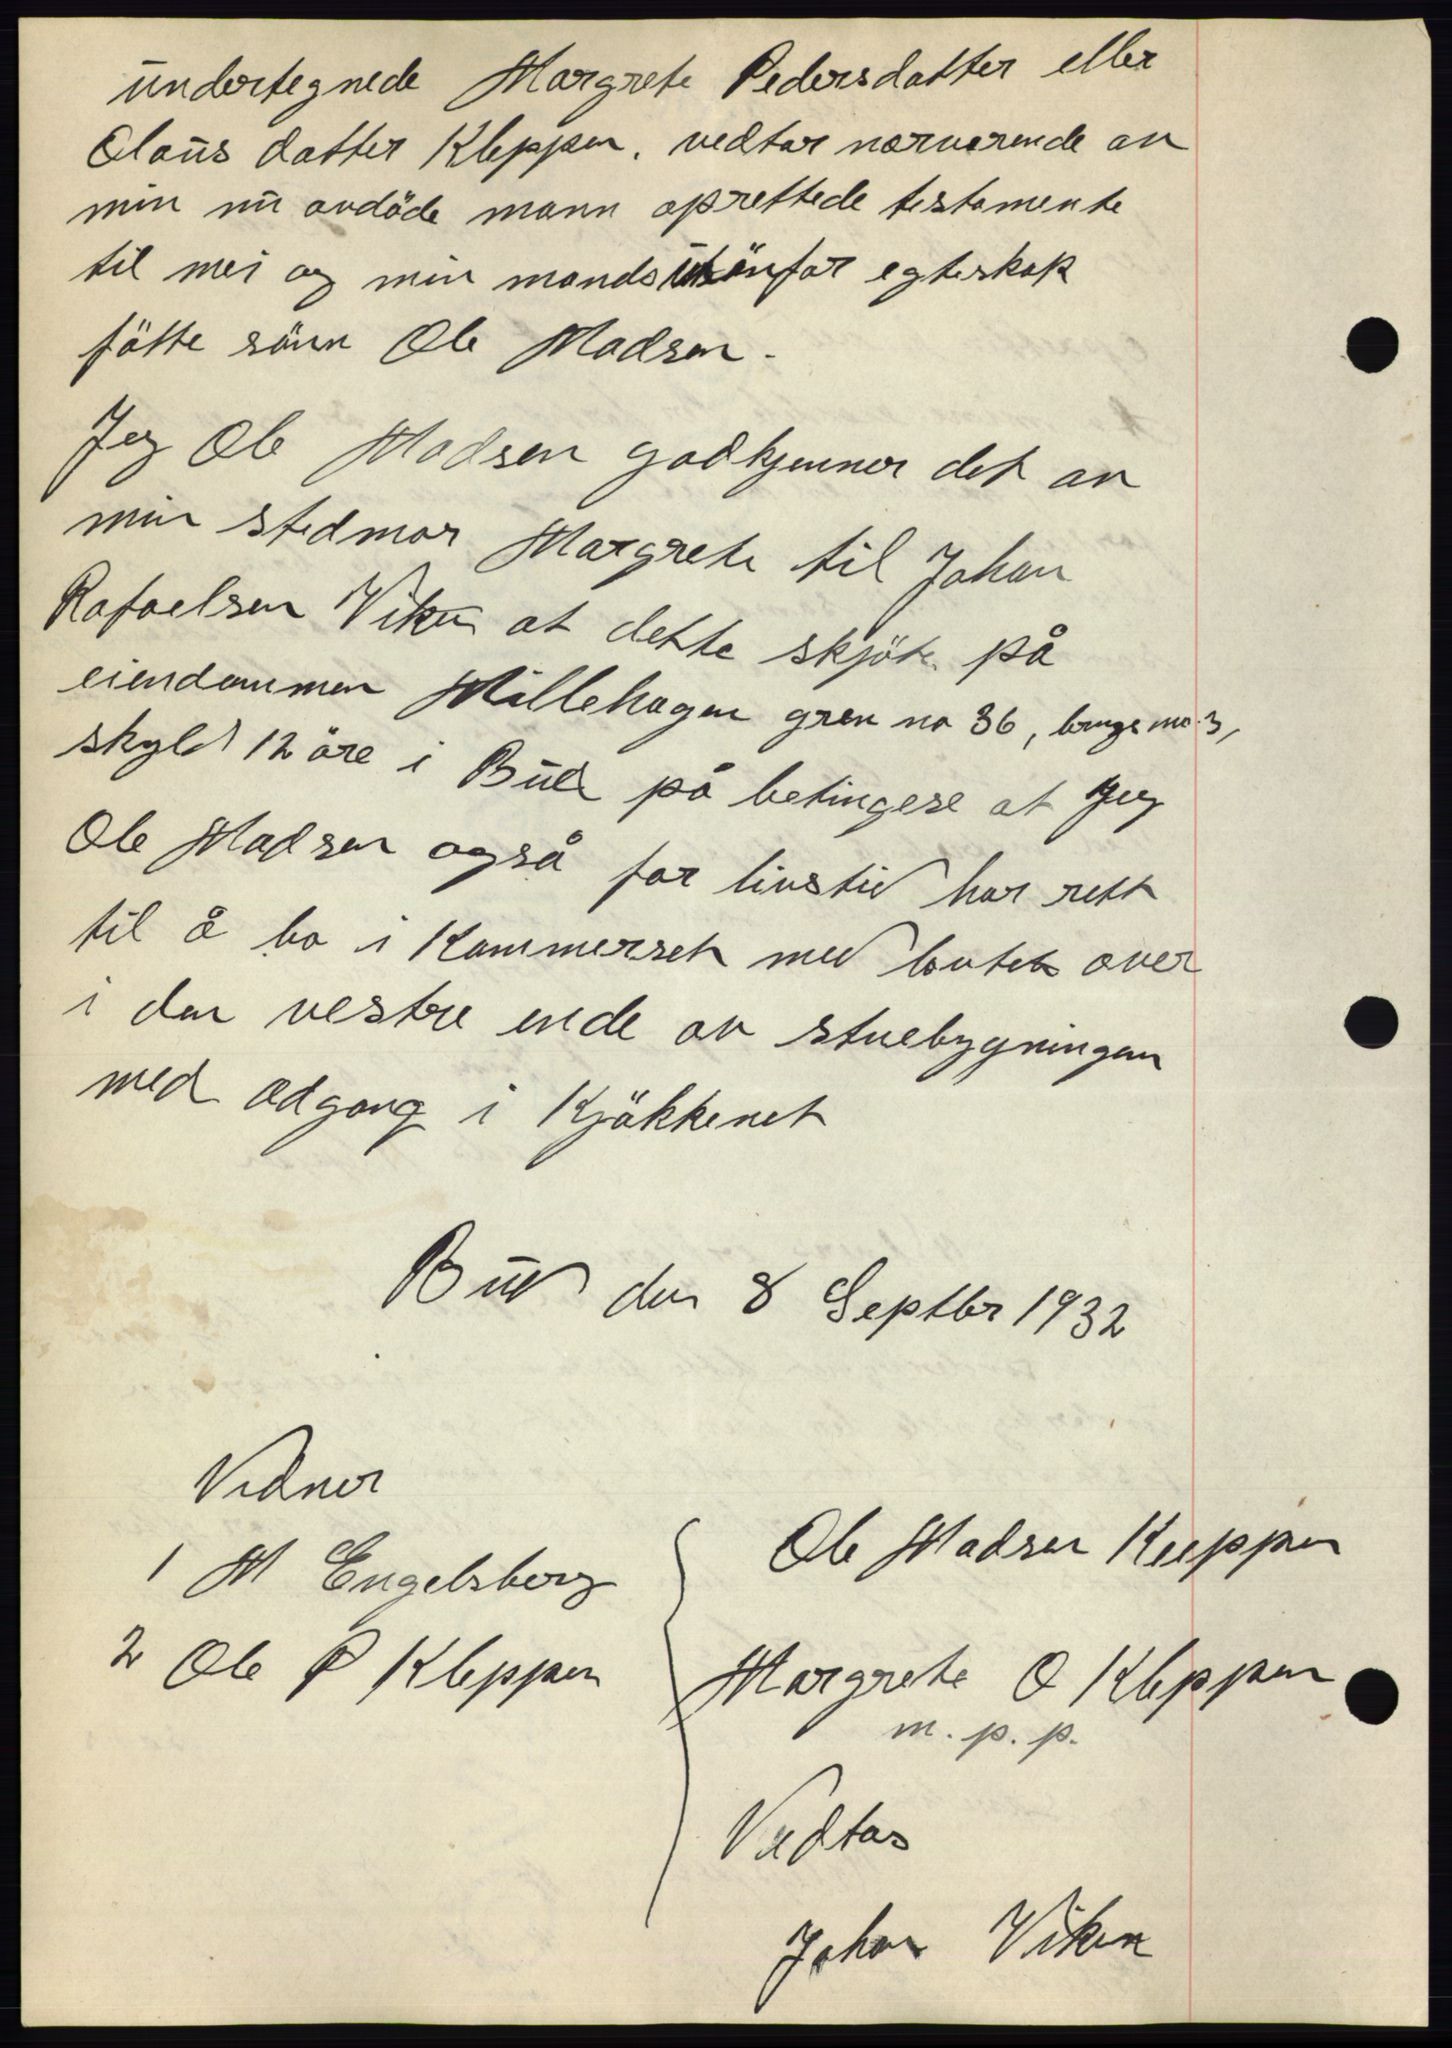 undertegnede Margrete Pedersdatter eller
Olaüs datter Kleppen. vedtar nærværende av
min nü avdöde mann oprettede testamente
til mei og min mands utenfor egteskap
fötte sönn Ole Madsen.
Jeg Ole Madsen godkjenner det av
min stedmor Margrete til Johan
Rafaelsen Viken at dette skjöte på
eiendommen Millehagen gren no 36, brugs no 3,
skyld 12 öre i Büd på betingese at Jeg
Ole Madsen også for livstid har rett
til å bo i Kammerset med loutet over
i den vestre ende av stuebygningen
med adgang i Kjökkenet
Büd den 8 Septbr 1932
Vidner
1 M Engelsberg
2 Ole P Kleppen
Ole Madsen Kleppen
Margrete O Kleppen
m. p. p.
Vedtas
Johan Viken